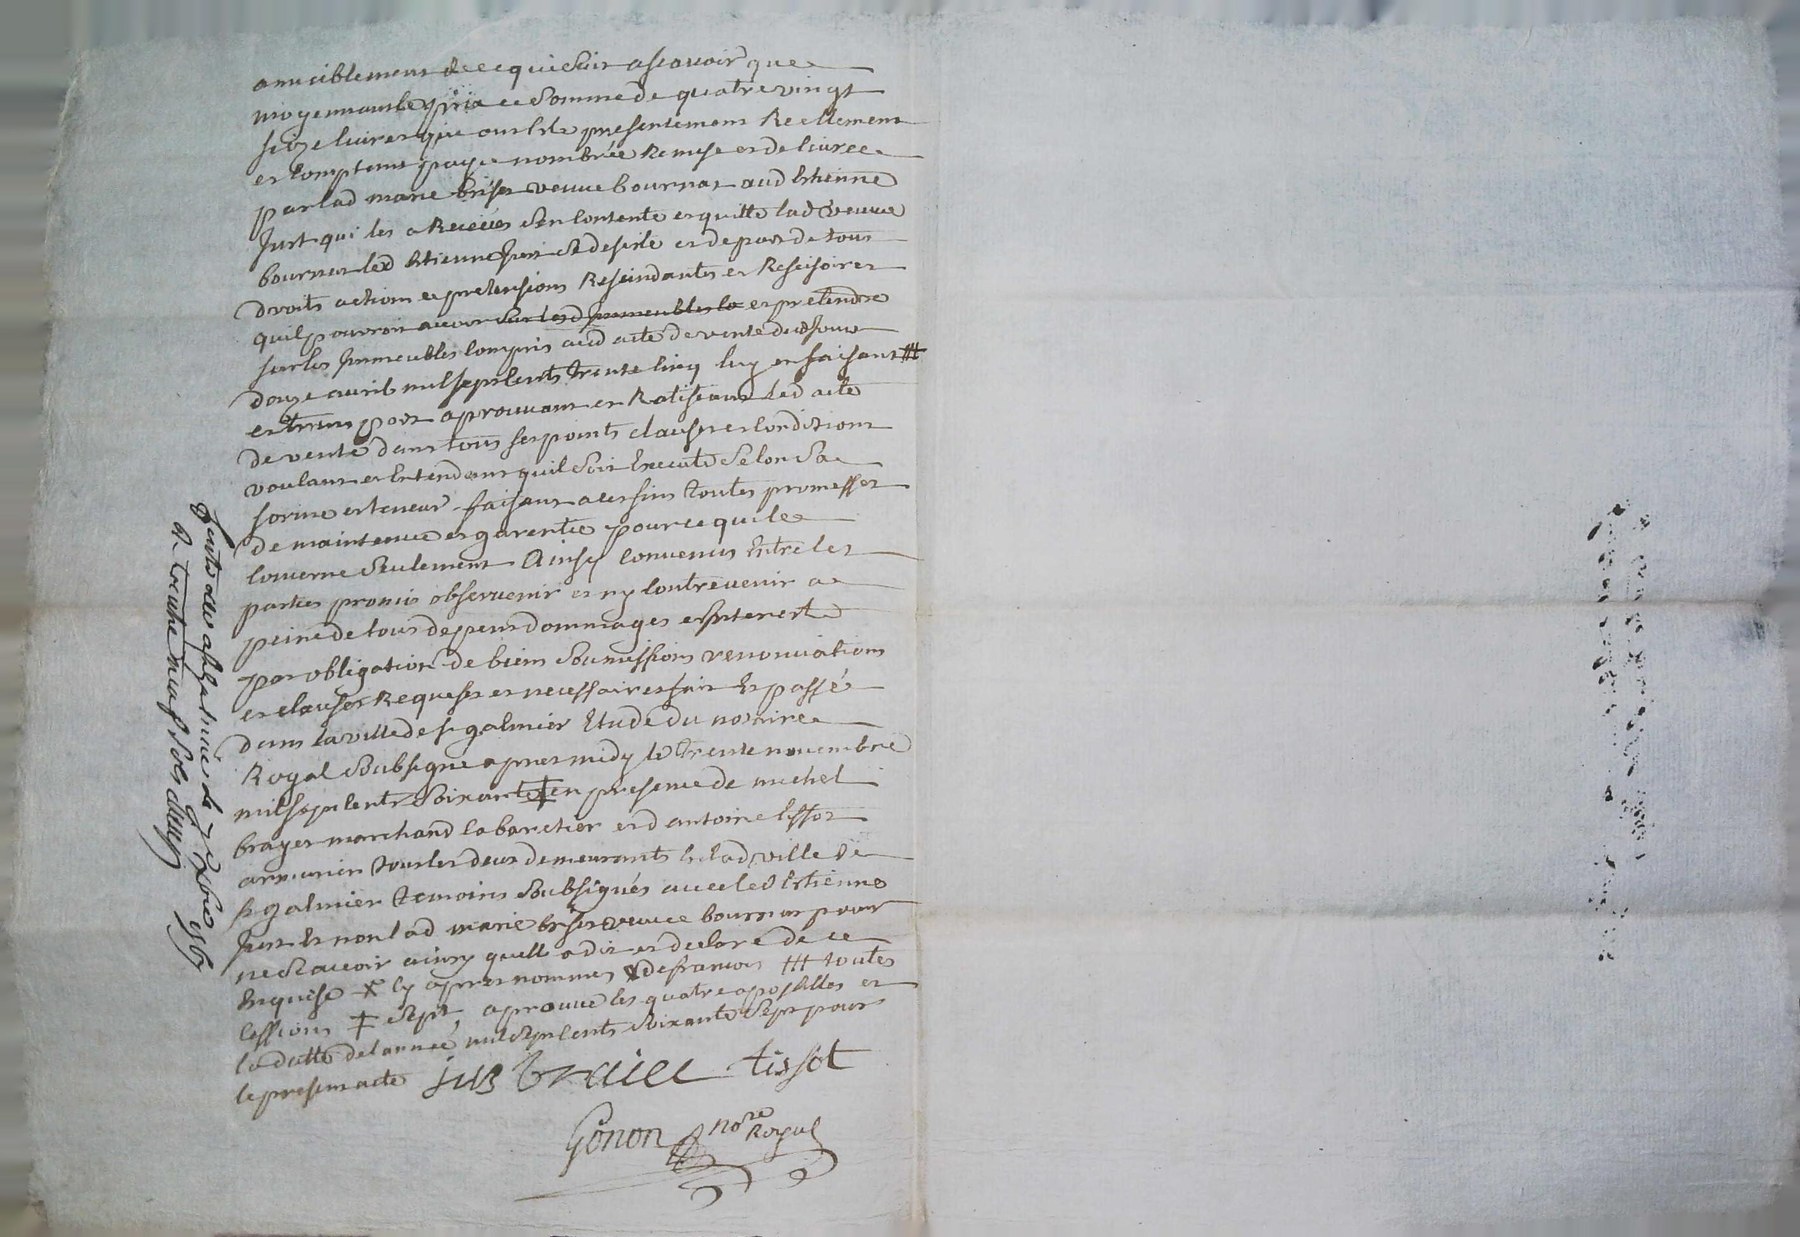 amiciblement de ce qui Suit ascavoir que
moyennant le prix et Somme de quatre vingt
seize livres que ont Este presentement Reellement
et Comptant payée nombrée Remise et delivrée
par lad marie veuve bournat aud Etienne
Just qui les a Receües S'en Contente et quitte lad veuve
bournat led Etienne Just Se desiste et depart de tous
droits actions et pretensions Rescindantes et Rescisoires
quil pourroit avoir Sur lesd Immeubles la et pretendre
sur les Immeubles Compris aud acte de vente dud Jour
douze avril mil sept Cents trente Cinq luy en faisant ###
et transport aprouvant et Ratifiant led acte
de vente dans tous ses points clauses et Conditions
voulant et Entendant quil Soit Executé Selon Sa
forme et teneur faisant a ces fins toutes promesses
de maintenue et garentie pour ce qui le
Concerne Seulement Ainsy Convenus Entre les
parties promis observer et ny Contrevenir a
peine de tous depens dommages et Interest
par obligation de biens Soumissions renonciations
et clauses Requises et necessaires fait Et passé
dans la ville de st galmier Etude du nottaire
Royal Soubsigné apres midy le trente novembre
mil sept Cents Soixante ‡ en presence de michel
brayer marchand Cabaretier et d antoine tissot
armurier tous les deux demeurants En lad ville de
st galmier temoins Soubsignés avec led Etienne
Just Et non lad marie veuve bournat pour
ne Scavoir ainsy quelle a dit et declaré de ce
Enquise * Cy apres nommés de francois ### toutes
Cessions ‡ Sept aprouvé les quatre apostilles et
la datte de l'année mil Sept Cents Soixante Sept pour
le present acte Just braiee tissot
Gonon nore Royal